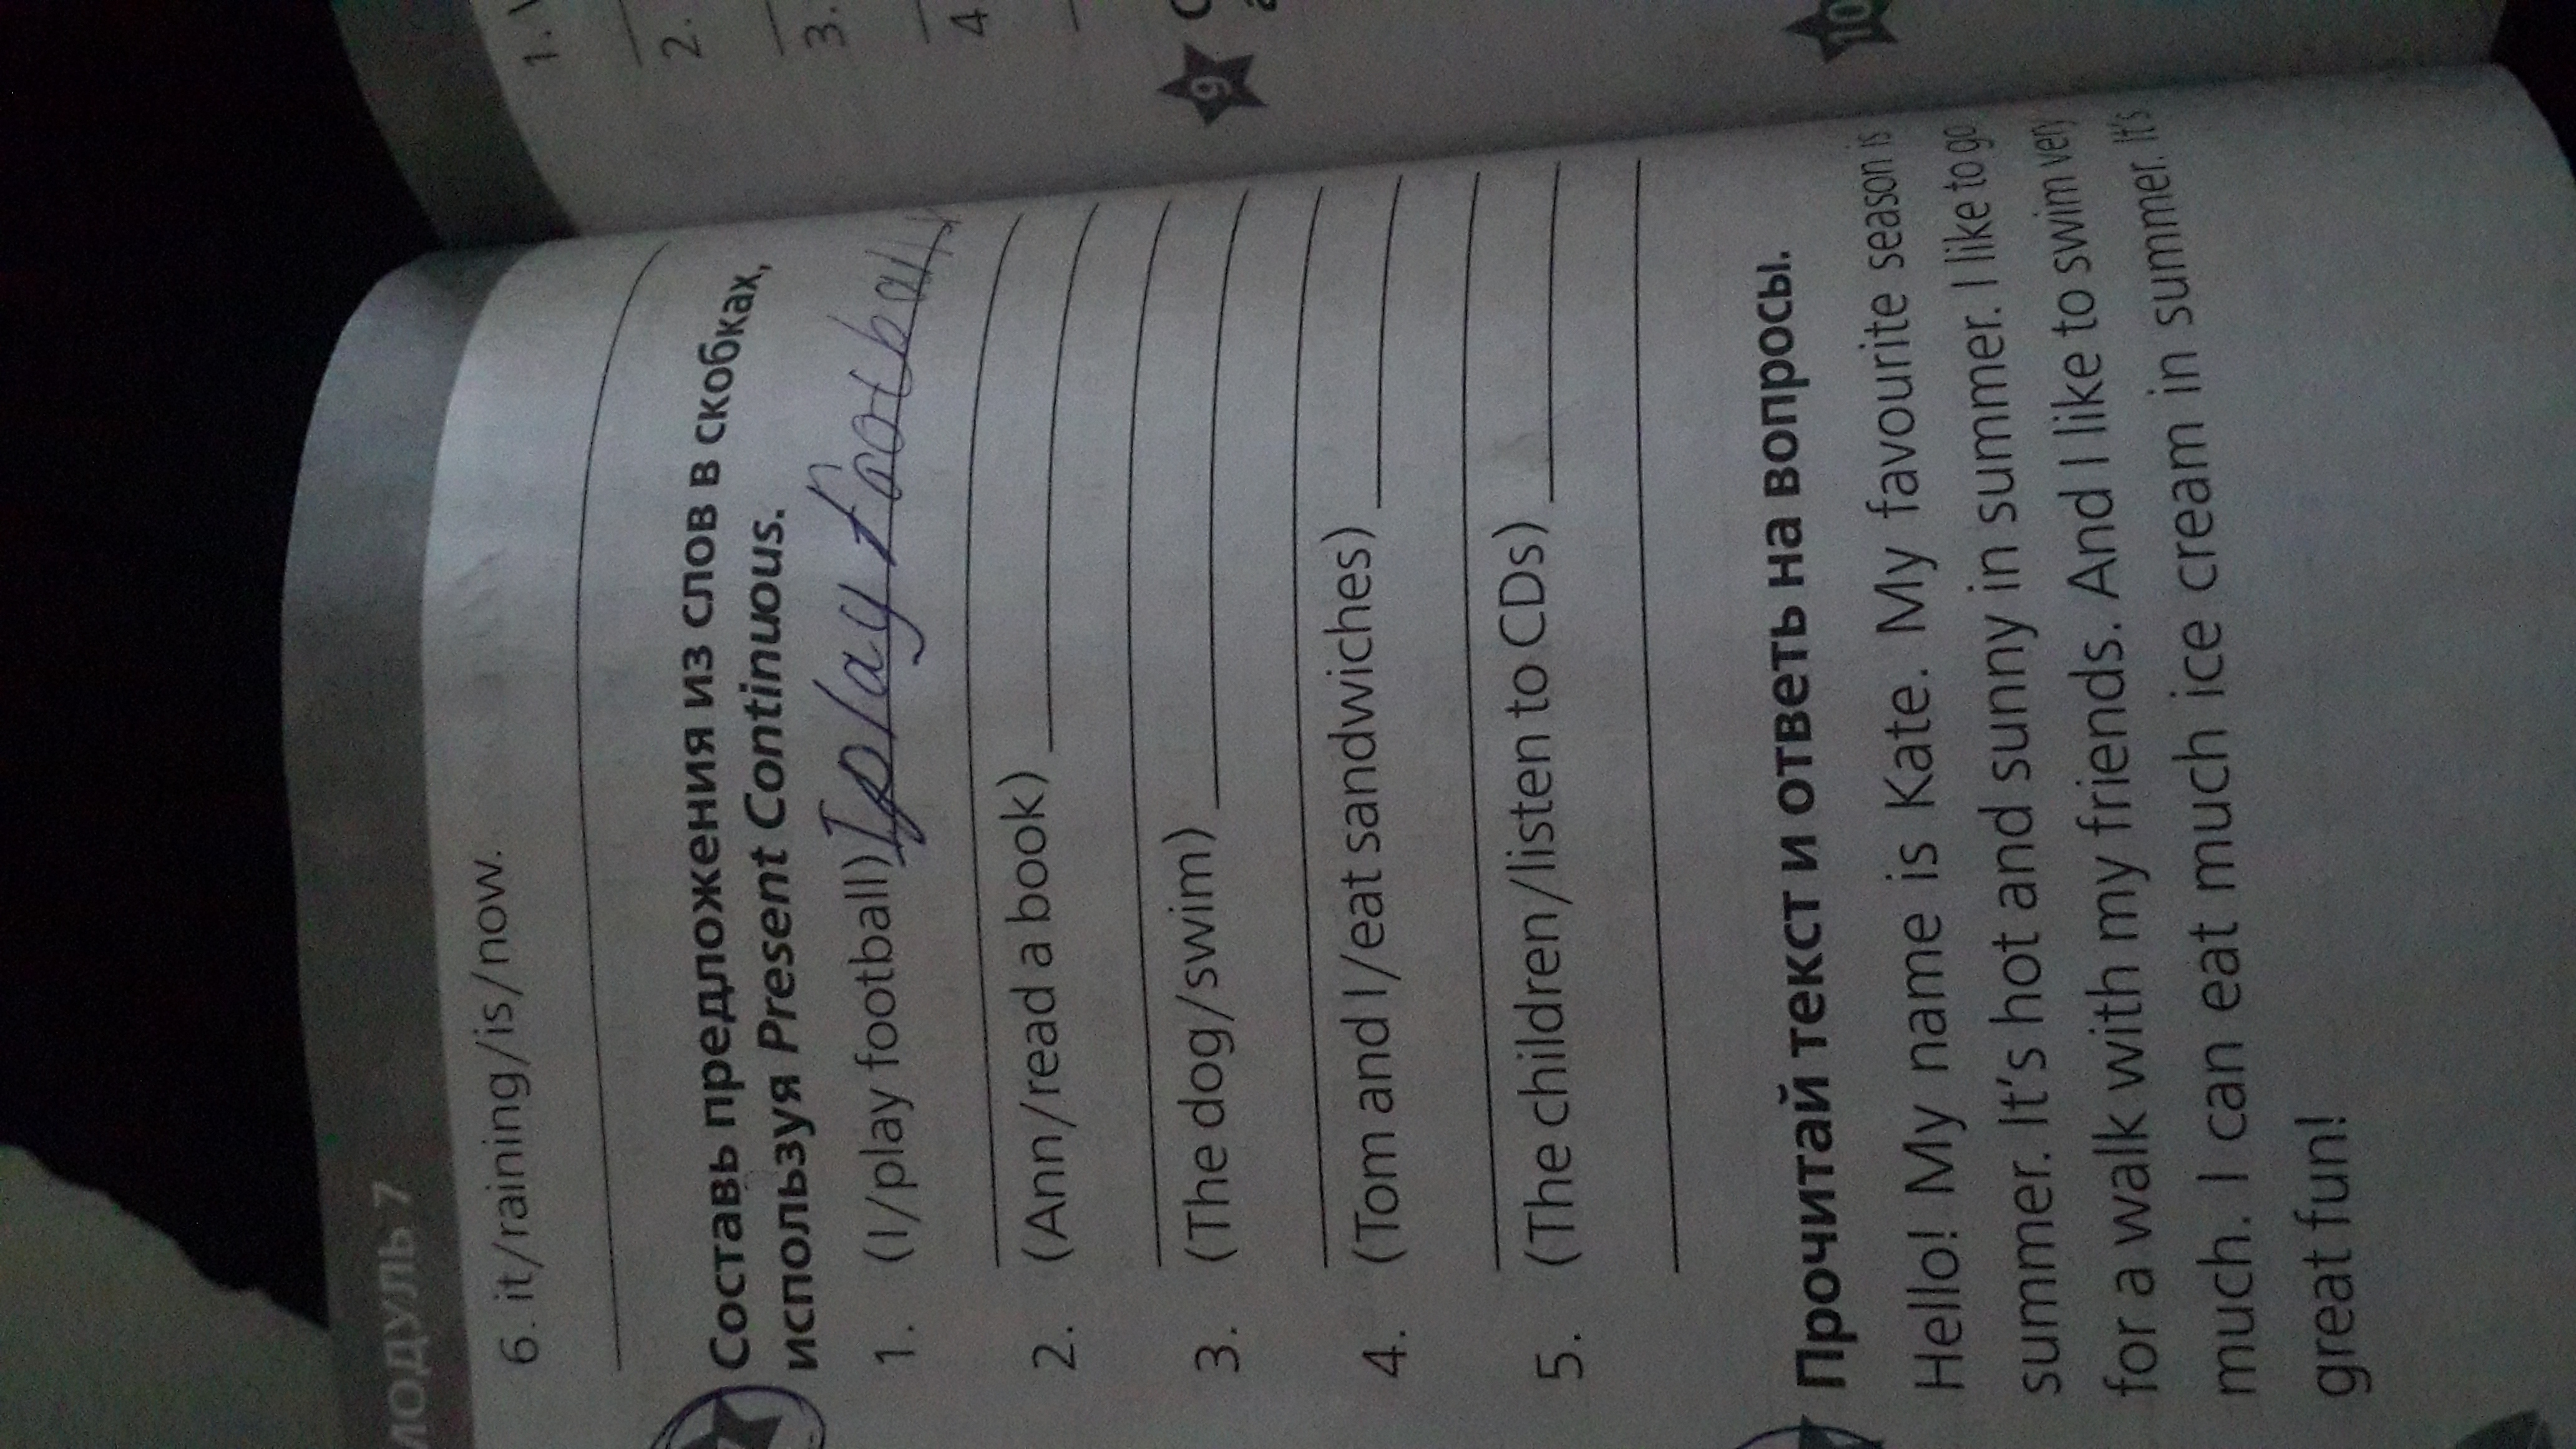 МОДУЛЬ 7
6. it/raining/is/now.
Составь предложения из слов в скобках,
используя Present Continuous.
1. (I/play football) I play football
2. (Ann/read a book)
3. (The dog/swim)
4. (Tom and I/eat sandwiches)
5. (The children/listen to CDs)
Прочитай текст и ответь на вопросы.
Hello! My name is Kate. My favourite season is
summer. It's hot and sunny in summer. I like to go
for a walk with my friends. And I like to swim very
much. I can eat much ice cream in summer. It's
great fun!
1.
2.
3.
4
9
10